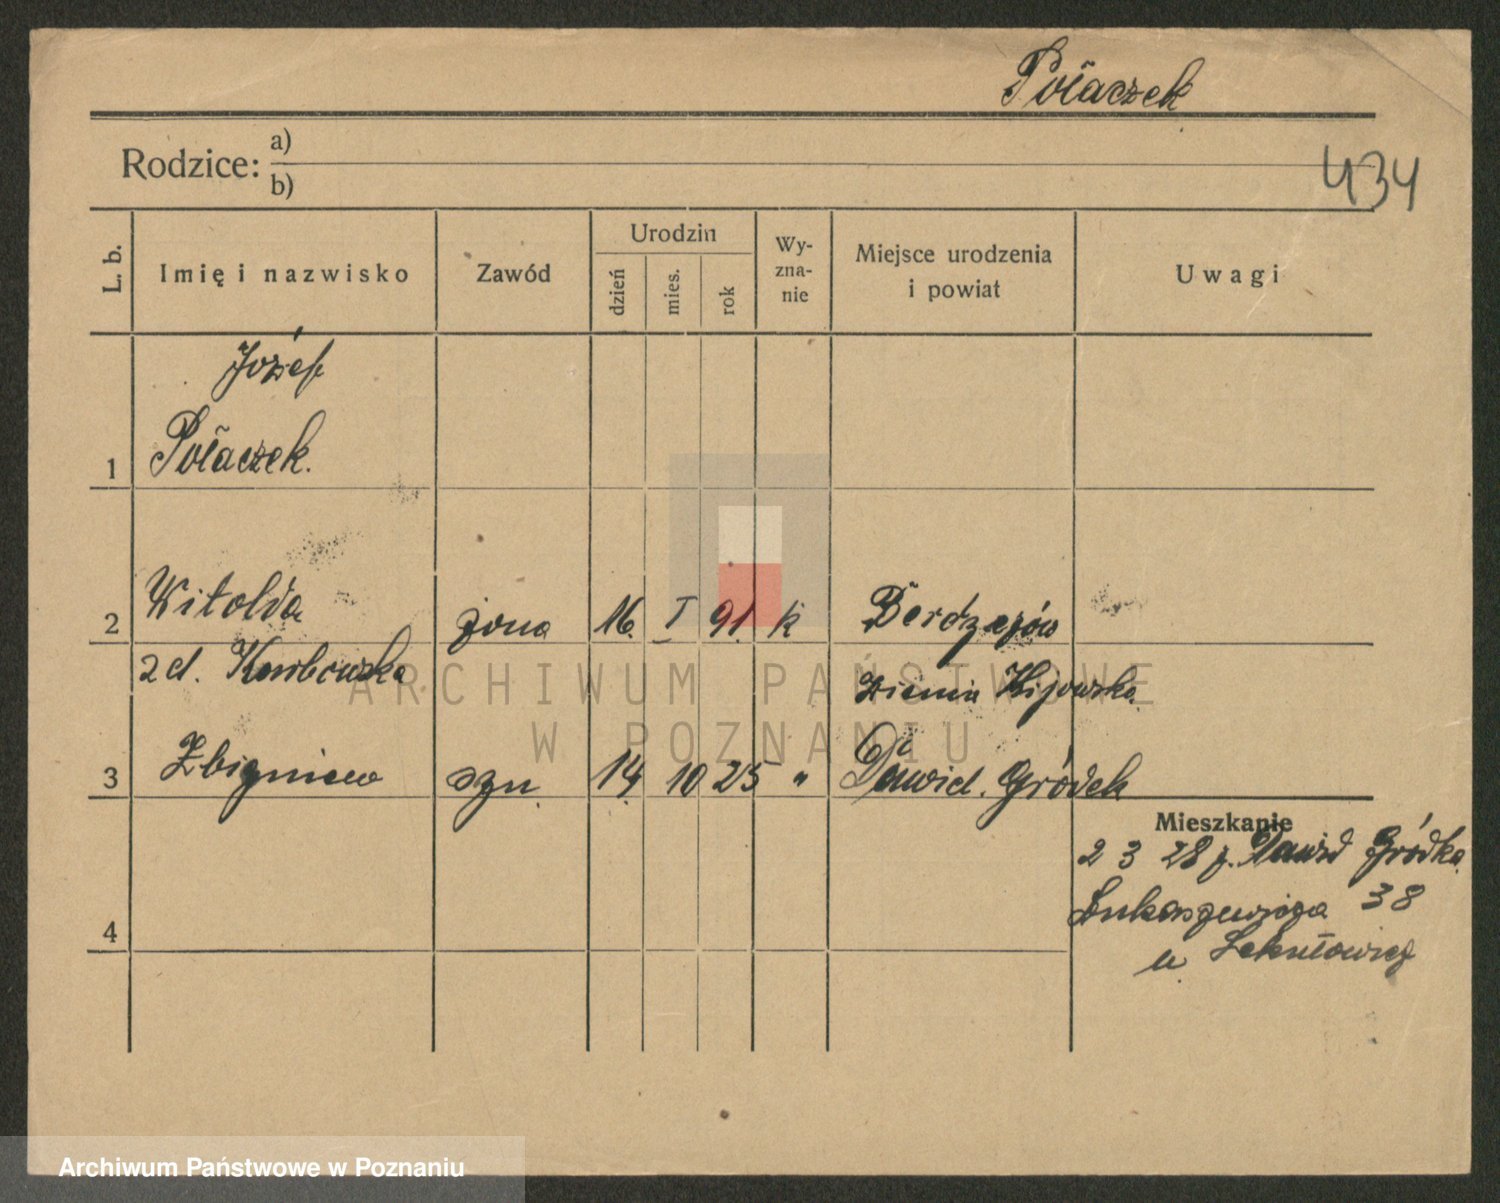 Połaczek
434
Rodzice: a)
b)
L. b.
Imię i nazwisko
Zawód
Urodzin
dzień
mies.
rok
Wy-
zna-
nie
Miejsce urodzenia
i powiat
Uwagi
Józef
1 Połaczek.
2 Witolda żona 16. I 91. k
z d.
ziemia Kijowska
3 Zbigniew syn 14 10 25 " Dawid. Gródek
Mieszkanie
2 3 28 z. Dawid Gródka
Łukaszewicza 38
u
4
ARCHIWUM PAŃSTWOWE
W POZNANIU
Archiwum Państwowe w Poznaniu